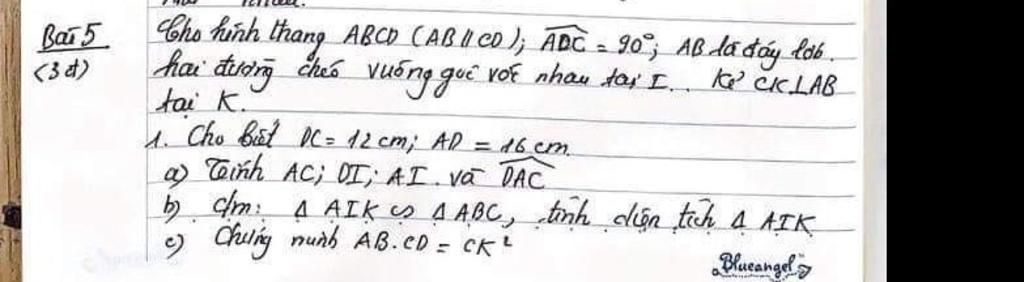 Bài 5
(3đ)
Cho hình thang ABCD (AB//CD); ADC = 90°; AB là đáy lớn.
hai đường chéo vuông góc với nhau tại I. Kẻ CK⊥AB
tại K.
1. Cho biết DC = 12 cm; AD = 16 cm
a) Tính AC; DI; AI. và DAC
b) c/m: Δ AIK ∽ Δ ABC, tính diện tích Δ AIK
c) Chứng minh AB.CD = CK²
Blueangel